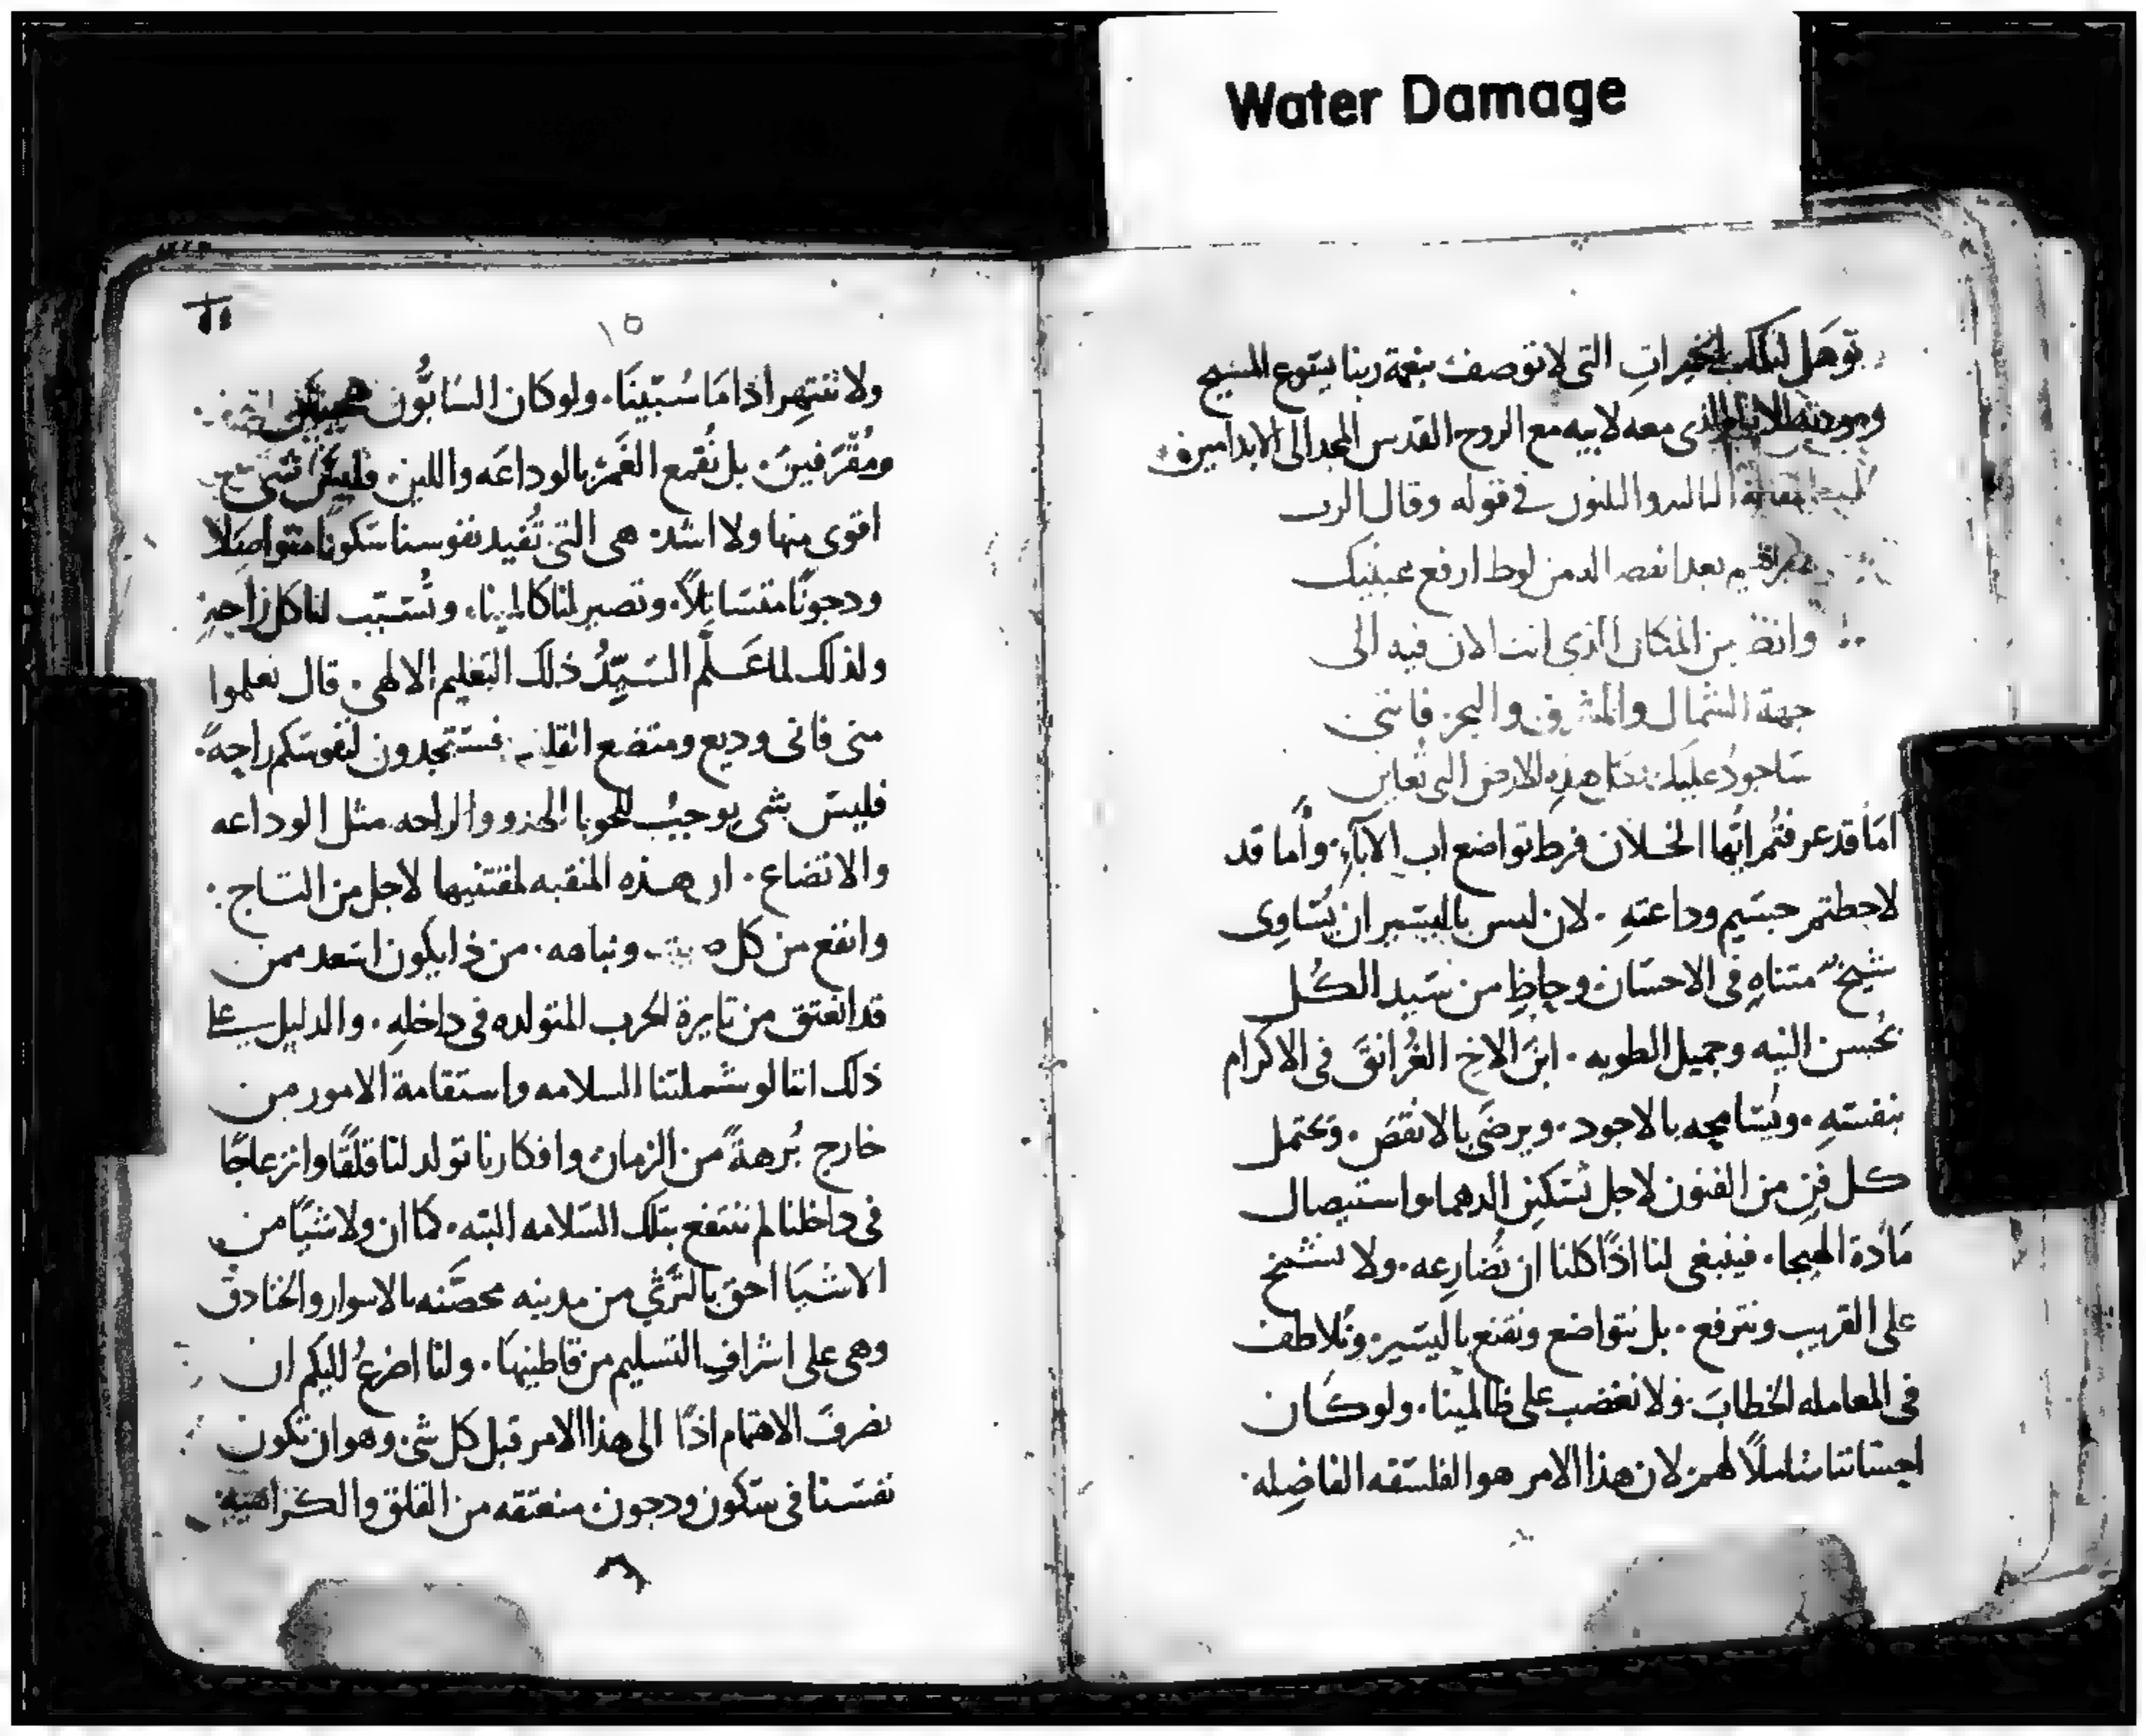 Water Damage
توهل لتلك الخيرات التي لا توصف بنعمة ربنا يسوع المسيح
معه لابيه مع الروح القدس المجد الى الابد امين
المقالة الثالثه والثلثون في قوله وقال الرب
بعد انفصال من لوط ارفع عينيك
وانظر من المكان الذي انت الان فيه الى
جهة الشمال والمشرق والبحر فانني
ساجود عليك هذه الارض التي تعاين
امَا قد عرفتُم ايُّها الخلان فرط تواضع اب الآباءِ. وأما قد
لاحطتم جسَيم وداعتهِ. لان ليس باليسَير ان يُسَاوِى
شيخٌ متناهٍ في الاحسَان. وحاظٍ من سَيد الكُل
بحُسن النيه وجميل الطويه. ابنَ الاخ الغُرانقَ في الاكرام
بنفسَهِ. ويُسَامحه بالاجود. ويرضَى بالانقصَ. ويحتمل
كل فنٍ من الفنون لاجل تسَكين الدهما واستيصال
مَادة الهيجا. فينبغي لنا اذًا كلنا ان نُضارِعه. ولا نتشمخ
على القريب ونترفع. بل نتواضع ونقنع باليسَير. ونُلاطف
في المعامله الخطابَ. ولا نغضب على ظالمينا. ولو كان
احسَاننا شاملًا لهم. لان هذا الامر هو الفلسَفه الفاضِله.
١٥
ولا ننتهر اذا مَا سُبّبنَا. ولو كان السَابُّون
ومُقْرَفينَ. بل نُقمع الغَمْرَ بالوداعَه واللين. فليسَ شي
اقوى منها ولا اشد. هي التي تُفيد نفوسنا سَكونًا متواصِلًا
ودجونًا متسَابلًا. وتصير لنا كالمينا. وتُسَبّب لنا كل راحةٍ
ولذلك لما عَلَّم السَيّدُ ذلك التعَليم الالهي. قال تعلموا
مني فاني وديع ومتضع القلب. فستجدون لنفوسَكم راحةً.
فليسَ شي يوجبُ للحوبا الهدوو والراحه مثل الوداعه
والاتضاع. ان هذه المنقبه لمقتنيها لاجل من التاج.
وانفع من كل ونباهه. من ذا يكون اسَعد ممن
قد انعتق من نايرة الحرب المتولده في داخلهِ. والدليل على
ذلك اننا لو شملتنا السلامه واستقامة الامور من
خارج بُرهةً من الزمان وافكارنا تولد لنا قلقًا وانزعاجًا
في داخلنا لم ننتفع بتلك السَلامه البته. كما ان ولا شيًا من
الاشيَا احق بالتَرثّي من مدينه محصَّنه بالاسوار والخنادق
وهي على اشرافِ التسَليم من قاطنيهَا. ولنا اضرعُ اليكم ان
نصَرفَ الاهتمام اذًا الى هذا الامر قبل كل شي. وهو ان تكون
نفسَنا في سَكون ودجون. منعتقه من القلق والكراهيه.